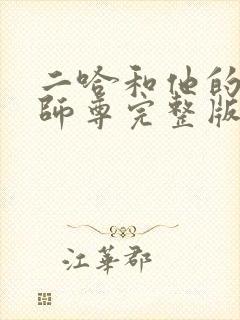 二哈和他的
師尊完整版
江華郡